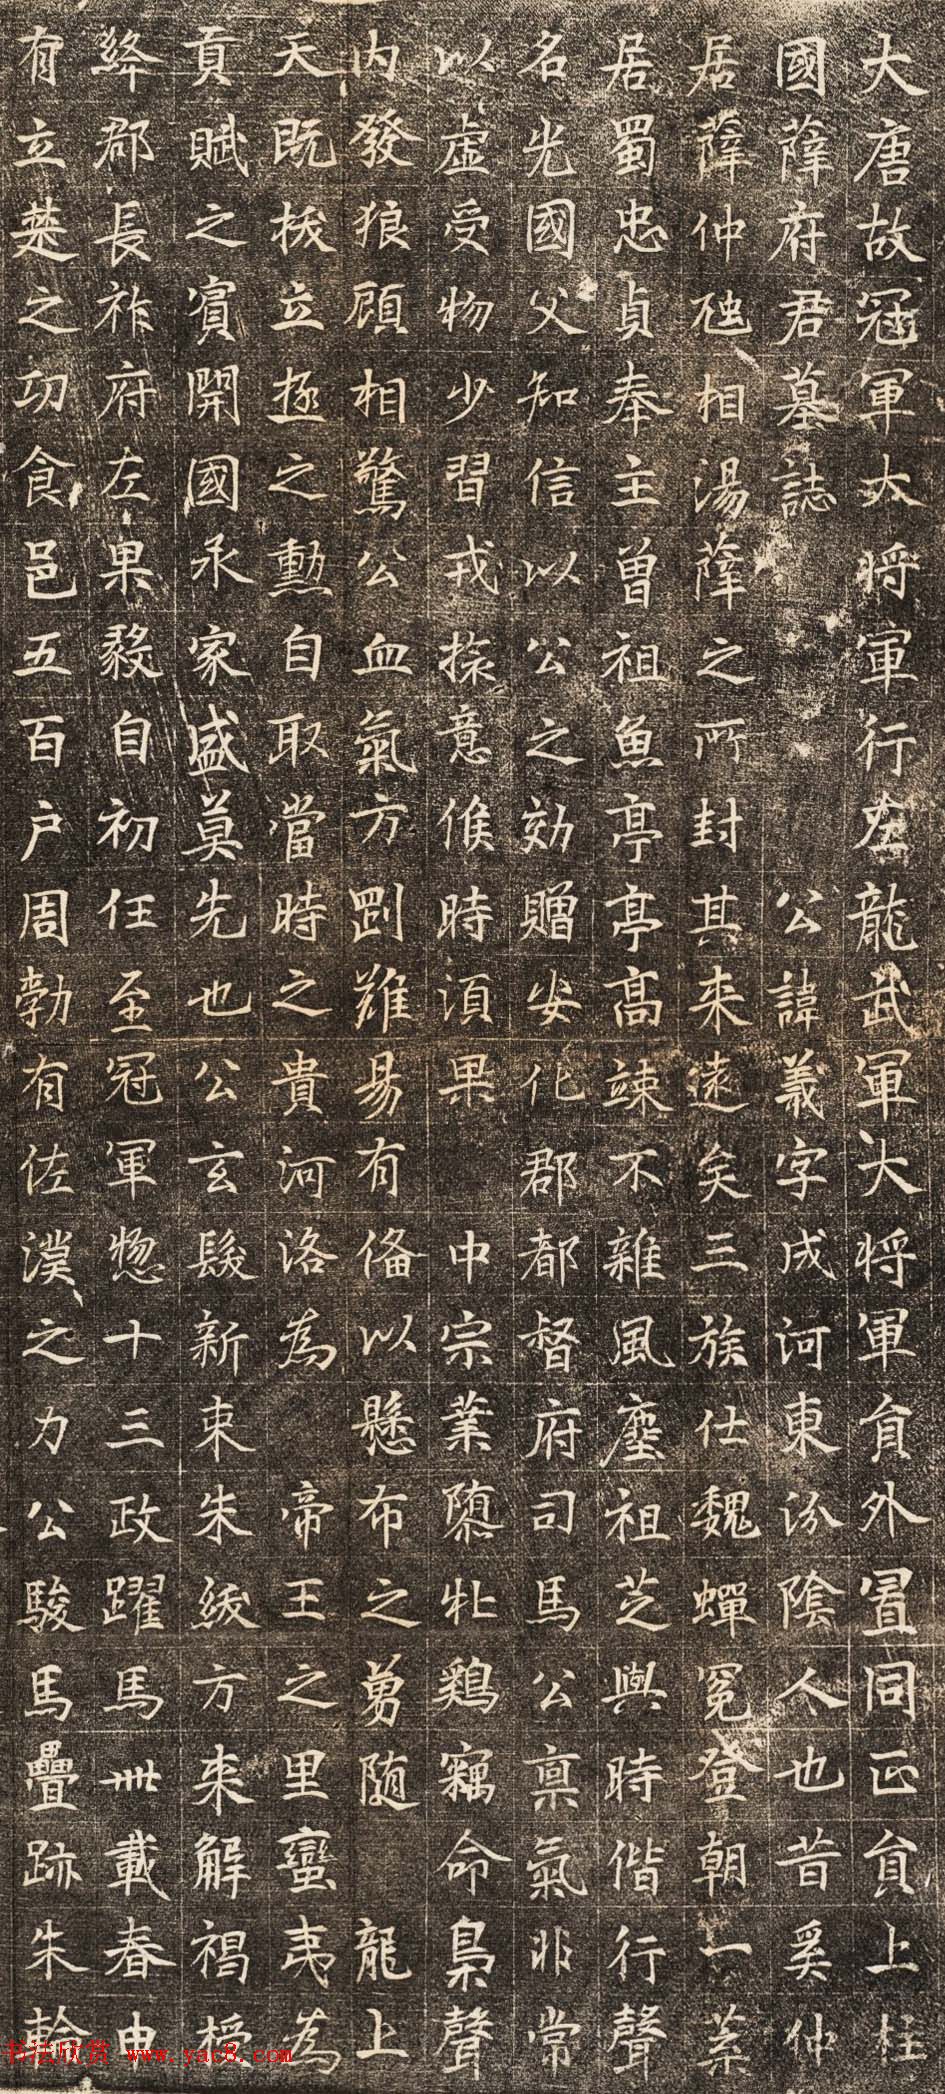 大唐故冠軍大將軍行左龍武軍大將軍員外置同正員上柱
國薛府君墓誌 公諱義字成河東汾陰人也昔奚仲
居薛仲虺相湯薛之所封其來遠矣三族仕魏蟬冕登朝一葉
居蜀忠貞奉主曾祖魚亭亭高竦不雜風塵祖芝與時偕行聲
名光國父知信以公之効贈安化郡都督府司馬公稟氣非常
以虛受物少習戎操意候時須果 中宗業隳牝鷄竊命梟聲
內發狼顧相驚公血氣方剛難易有俻以懸布之勇随 龍上
天既拔立極之勳自取當時之貴河洛為 帝王之里蠻夷為
貢賦之賓開國承家盛莫先也公玄髮新束朱紱方来解褐授
絳郡長祚府左果毅自初任至冠軍惣十三政躍馬卌載春申
有立莱之功食邑五百户周勃有佐漢之力公駿馬疊跡朱輪
书法欣赏 www.yac8.com